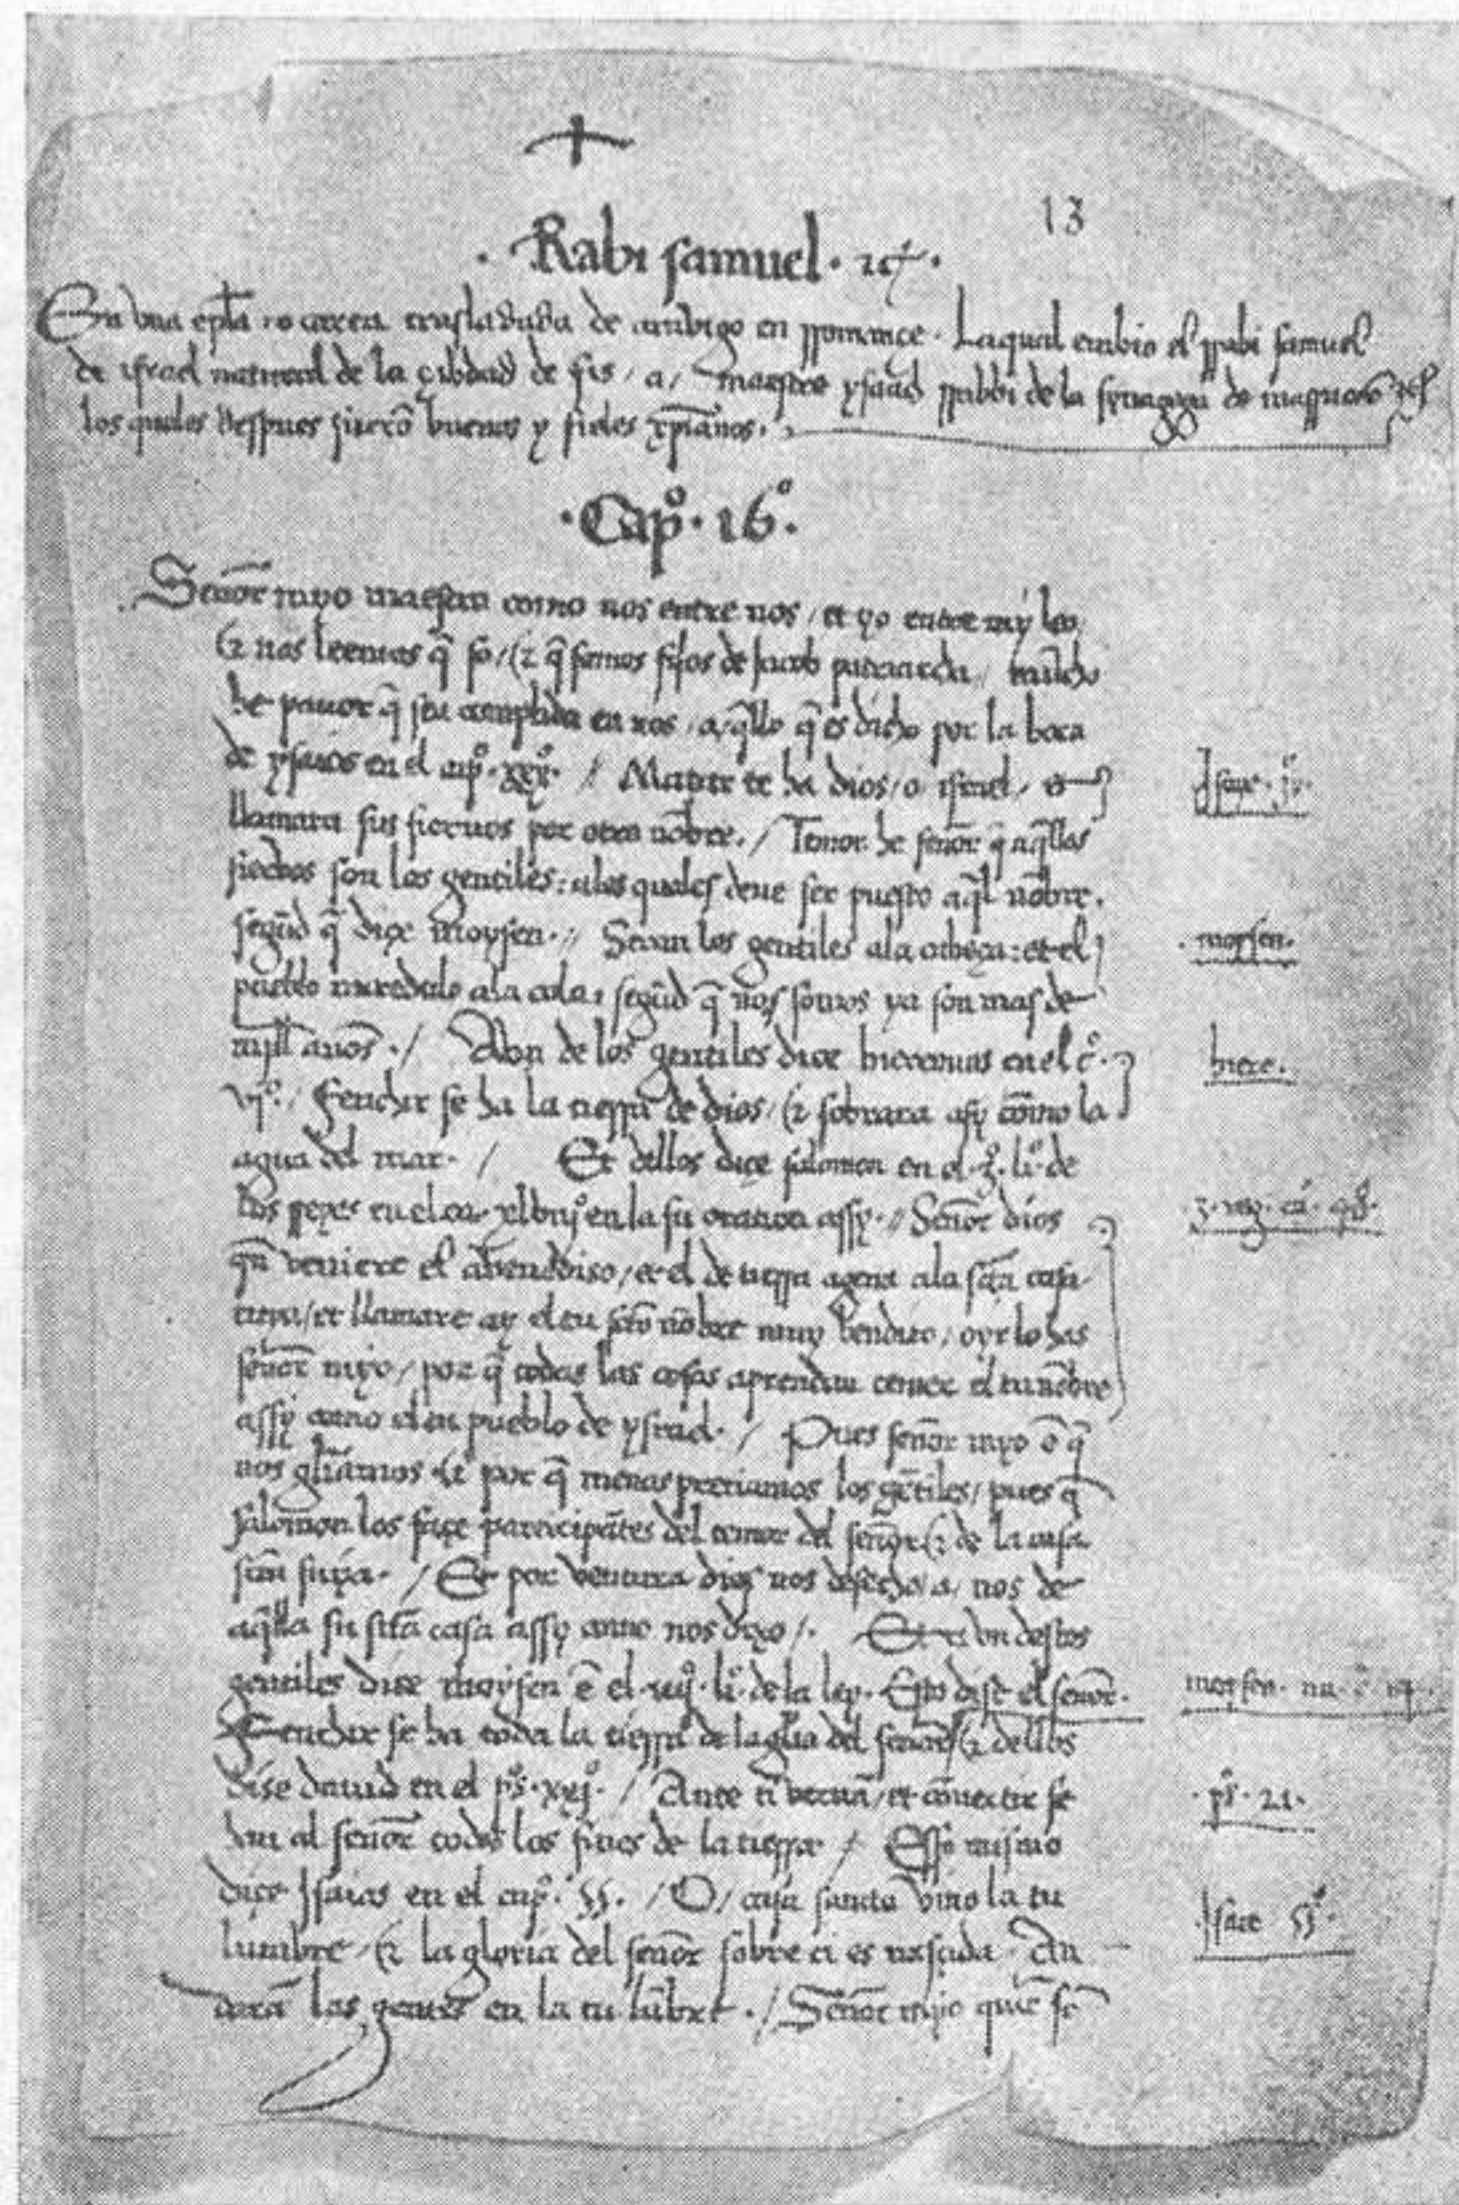 13
Rabi samuel
En vna epła o carta trasladada de arabigo en rromançe. La qual enbio el rrabi samuel
de israel natural de la çibdad de fis, a, maestre ysaac rrabbi de la synagoga de marruecos
los quales despues fuerõ buenos y fieles xp̃ianos.
Capº. 16º.
Señor myo maestro como nos entre nos, et yo entre my leo
& nos leemos q̃ so, & q̃ somos fijos de Jacob patriarcha, mũcho
he pauor q̃ sea complida en nos, a,q̃llo q̃ es dicho por la boca
de ysaias en el capº. / Matar te ha dios, o israel, et
Isaye
llamara sus sieruos por otro nõbre. / Temor he señor q̃ aq̃llos
sieruos son los gentiles: a los quales deue ser puesto aq̃l nõbre.
segũd q̃ diçe moysen. // Seran los gentiles a la cabeça: et el
moysen.
pueblo incredulo a la cola, segũd q̃ nos somos ya son mas de
mjll años. / Avn de los gentiles dice hieremias en el cº.
hiere.
vjº. / Fenchir se ha la tierra de dios, & sobrara asy cõmo la
agua del mar. / Et dellos diçe salomon en el .3º. liº. de
los rreyes en el ca. en la su oration assy. // Señor dios
3. reg. ca.
qñ veniere el auenedizo, et el de tierra agena a la sctã casa
tuya, et llamare ay el tu scto nõbre muy bendito, oyr lo has
señor myo, por q̃ todas las cosas aprendan temer el tu nõbre
assy como el tu pueblo de ysrael. / Pues señor myo ẽ q̃
nos glĩamos & por q̃ menospreciamos los gẽtiles, pues q̃
salomon los façe participãtes del temor del señor & de la casa
sctã suya. / Et por ventura dios nos desecho, a, nos de
aq̃lla su sctã casa assy como nos dixo /. Et avn destos
gentiles dice moysen ẽ el .iiijº. liº. de la ley. Esto dise el señor.
moysen. nu.
Fenchir se ha toda la tierra de la gl̃ia del señor & dellos
dise dauid en el ps̃. xxjº. / Ante ti vernã, et cõuertir se
ps̃. 21.
han al señor todos los fines de la tierra / Esso mismo
diçe Isaias en el capº. 55. / O, casa sancta vino la tu
Isaie 55º.
lumbre, & la gloria del señor sobre ti es nasçida. An
darã las gentes en la tu lũbre. / Señor myo quiẽ sõ